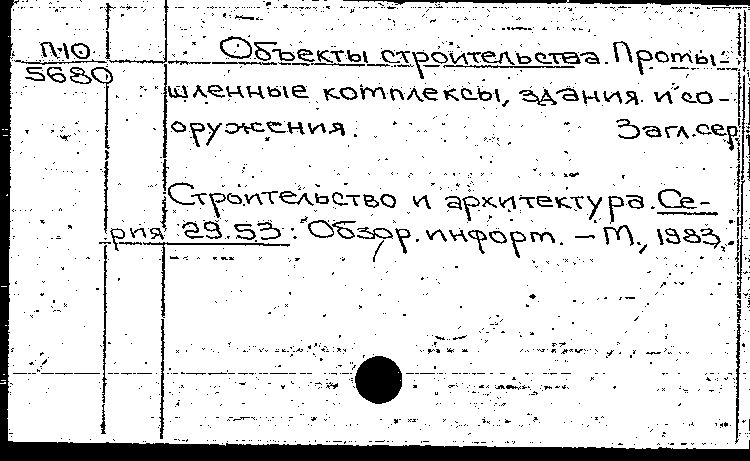 П-10
5680
Объекты строительства. Промы-
шленные комплексы, здания и со-
оружения. Загл.сер.
Строительство и архитектура. Се-
рия 29.53: Обзор. информ. — М., 1983.